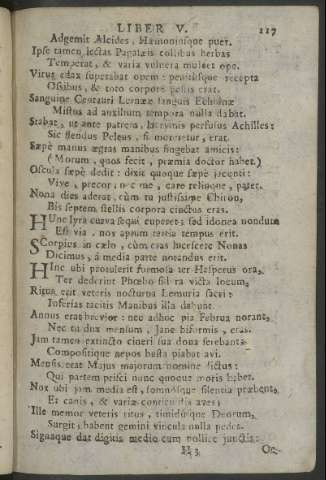 LIBER V. 117
Adgemit Alcides, Hæmoniusque puer.
Ipse tamen lectas Pagasæis collibus herbas
Temperat, & varia vulnera mulcet ope.
Virus edax superabat opem: penitusque recepta
Ossibus, & toto corpore pestis erat.
Sanguine Centauri Lernææ sanguis Echidnæ
Mistus ad auxilium tempora nulla dabat.
Stabat, ut ante patrem, lacrymis perfusus Achilles:
Sic flendus Peleus, si moreretur, erat.
Sæpè manus ægras manibus fingebat amicis:
(Morum, quos fecit, præmia doctor habet.)
Oscula sæpè dedit: dixit quoque sæpè jacenti:
Vive, precor; nec me, care relinque, pater.
Nona dies aderat, cùm tu justissime Chiron,
Bis septem stellis corpora cinctus eras.
HUnc lyra curva sequi cuperet; sed idonea nondum
Est via. nox aptum tertia tempus erit.
SCorpius in cœlo, cùm cras lucescere Nonas
Dicimus, à media parte notandus erit.
HInc ubi protulerit formosa ter Hesperus ora,
Ter dederint Phœbo sidera victa locum,
Ritus erit veteris nocturna Lemuria sacri:
Inferias tacitis Manibus illa dabunt.
Annus erat brevior: nec adhuc pia Februa norant,
Nec tu dux mensum, Jane biformis, eras.
Jam tamen extincto cineri sua dona ferebant:
Compositique nepos busta piabat avi.
Mensis erat Majus majorum nomine dictus:
Qui partem prisci nunc quoque moris habet.
Nox ubi jam media est, somnosque silentia præbent,
Et canis, & variæ conticuistis aves;
Ille memor veteris ritus, timidusque Deorum,
Surgit; habent gemini vincula nulla pedes.
Signaque dat digitis medio cum pollice junctis:
H 3 Oc-